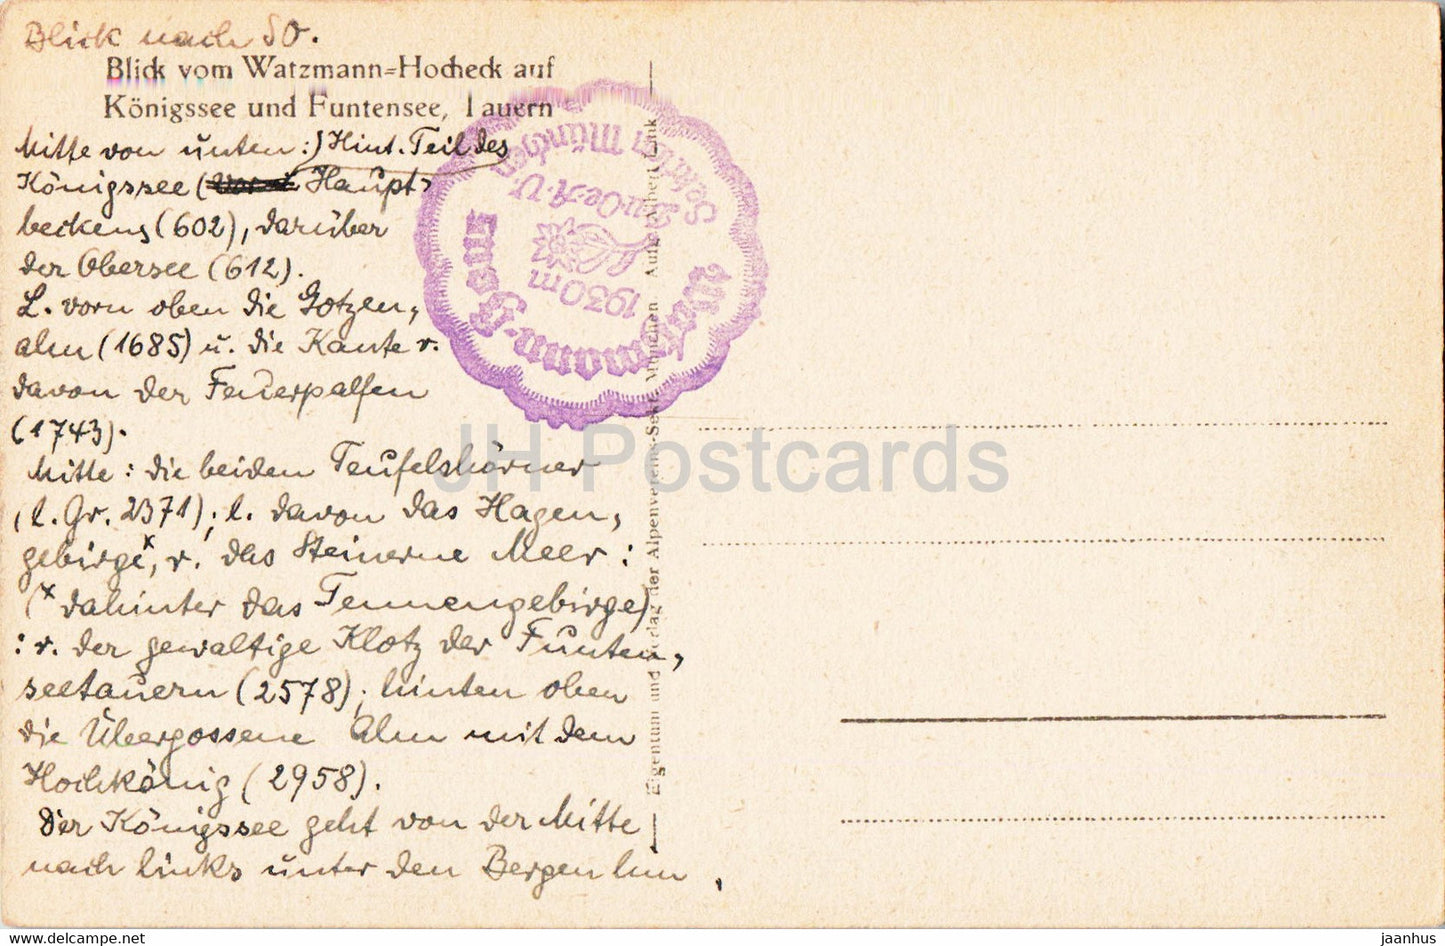 Blick nach SO.
Blick vom Watzmann-Hocheck auf
Königssee und Funtensee, Tauern
Mitte von unten:) Hint. Teil des
Königssee ( Haupt-
beckens (602), darüber
der Obersee (612).
L. vorn oben die Gotzen-
alm (1685) u. die Kante r.
davon der Feuerpalfen
(1743).
Mitte: die beiden Teufelshörner
(l. Gr. 2371); l. davon das Hagen-
gebirge x, r. das Steinerne Meer:
(x dahinter das Tennengebirge)
: r. der gewaltige Klotz der Funten-
seetauern (2578); hinten oben
die Übergossene Alm mit dem
Hochkönig (2958).
Der Königssee geht von der Mitte
nach links unter den Bergen hin.
Watzmann-Haus
1930 m
D.u.Oe.A.V.
Sektion München
Eigentum und Verlag der Alpenvereins-Sekt. München Aufn. Albert Link
JH Postcards
https://jhpostcards.com
jaanhus